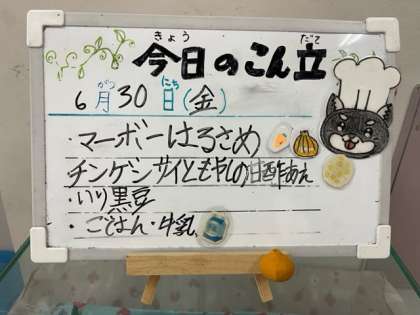 きょう だて
今日のこん立
がつ にち
6月30日(金)
・マーボーはるさめ
チンゲンサイともやしの甘酢あえ
・いり黒豆
・ごはん・牛乳